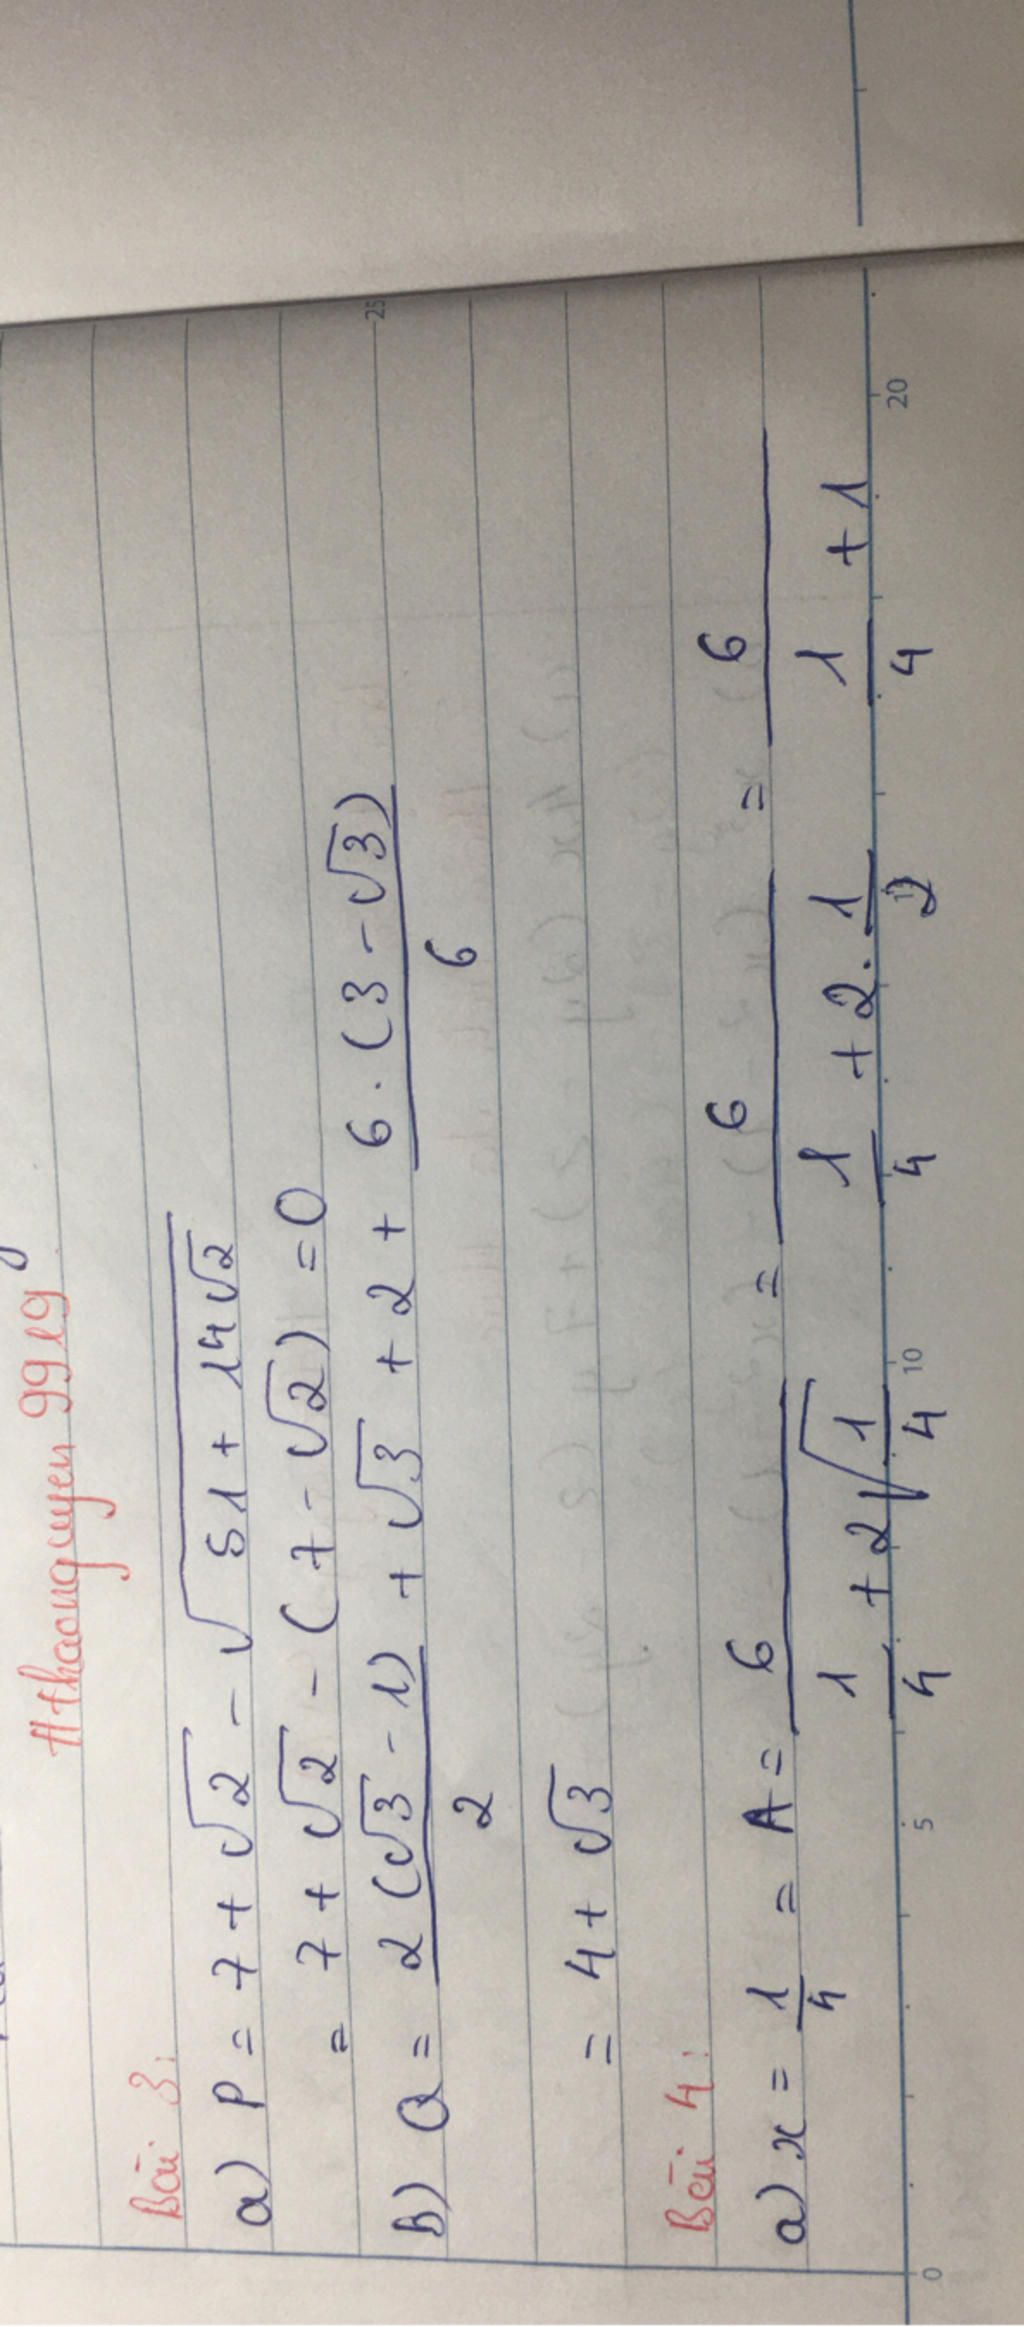 #thaonguyen99lg
Bài 3:
a) P = 7 + √2 - √(51 + 14√2)
= 7 + √2 - (7 - √2) = 0
b) Q = 2(√3 - 1)/2 + √3 + 2 + 6.(3 - √3)/6
= 4 + √3
Bài 4:
a) x = 1/4 = A = 6/(1/4 + 2√(1/4)) = 6/(1/4 + 2.1/2) = 6/(1/4 + 1)
25
0 5 10 20